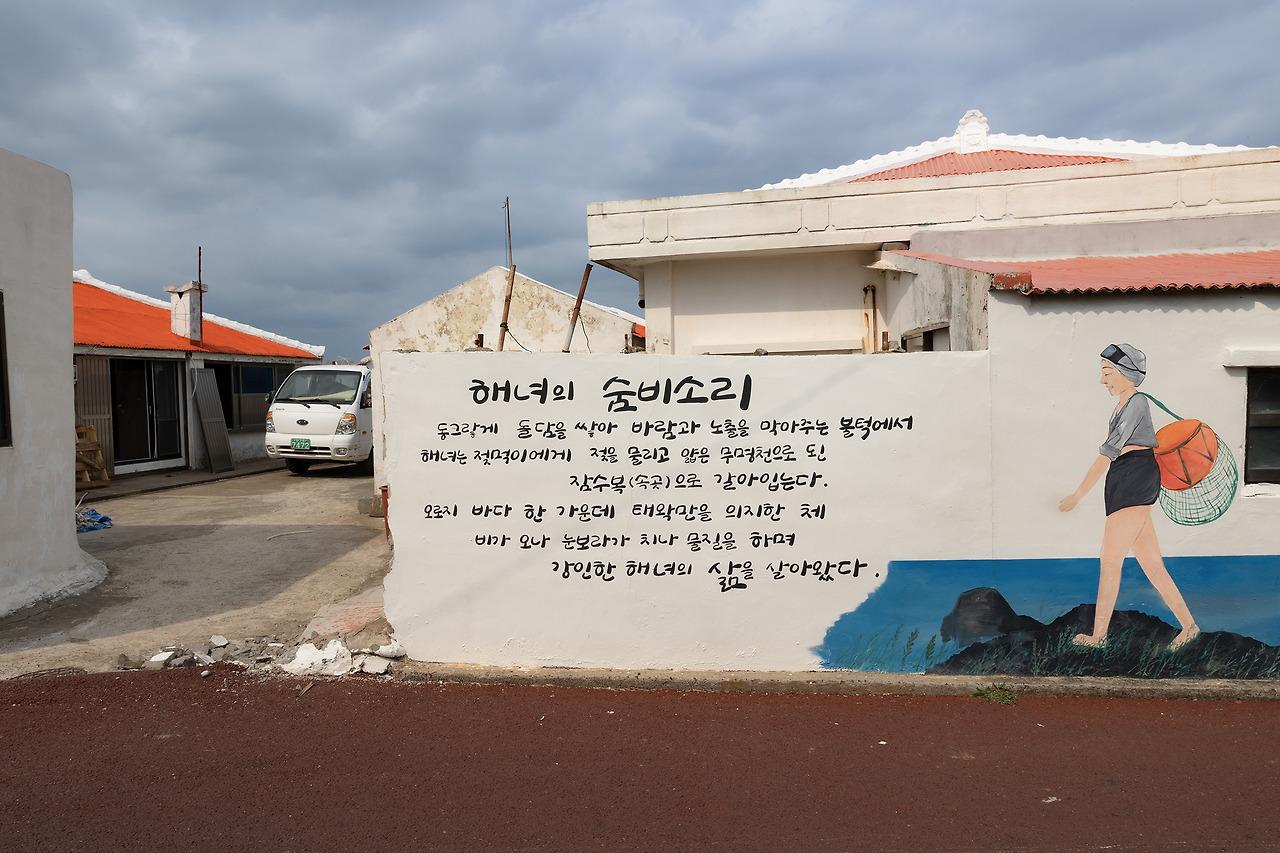 해녀의 숨비소리
동그랗게 돌담을 쌓아 바람과 노출을 막아주는 불턱에서
해녀는 젖먹이에게 젖을 물리고 얇은 무명천으로 된
잠수복(속곳)으로 갈아입는다.
오로지 바다 한 가운데 태왁만을 의지한 체
비가 오나 눈보라가 치나 물질을 하며
강인한 해녀의 삶을 살아왔다.
7472